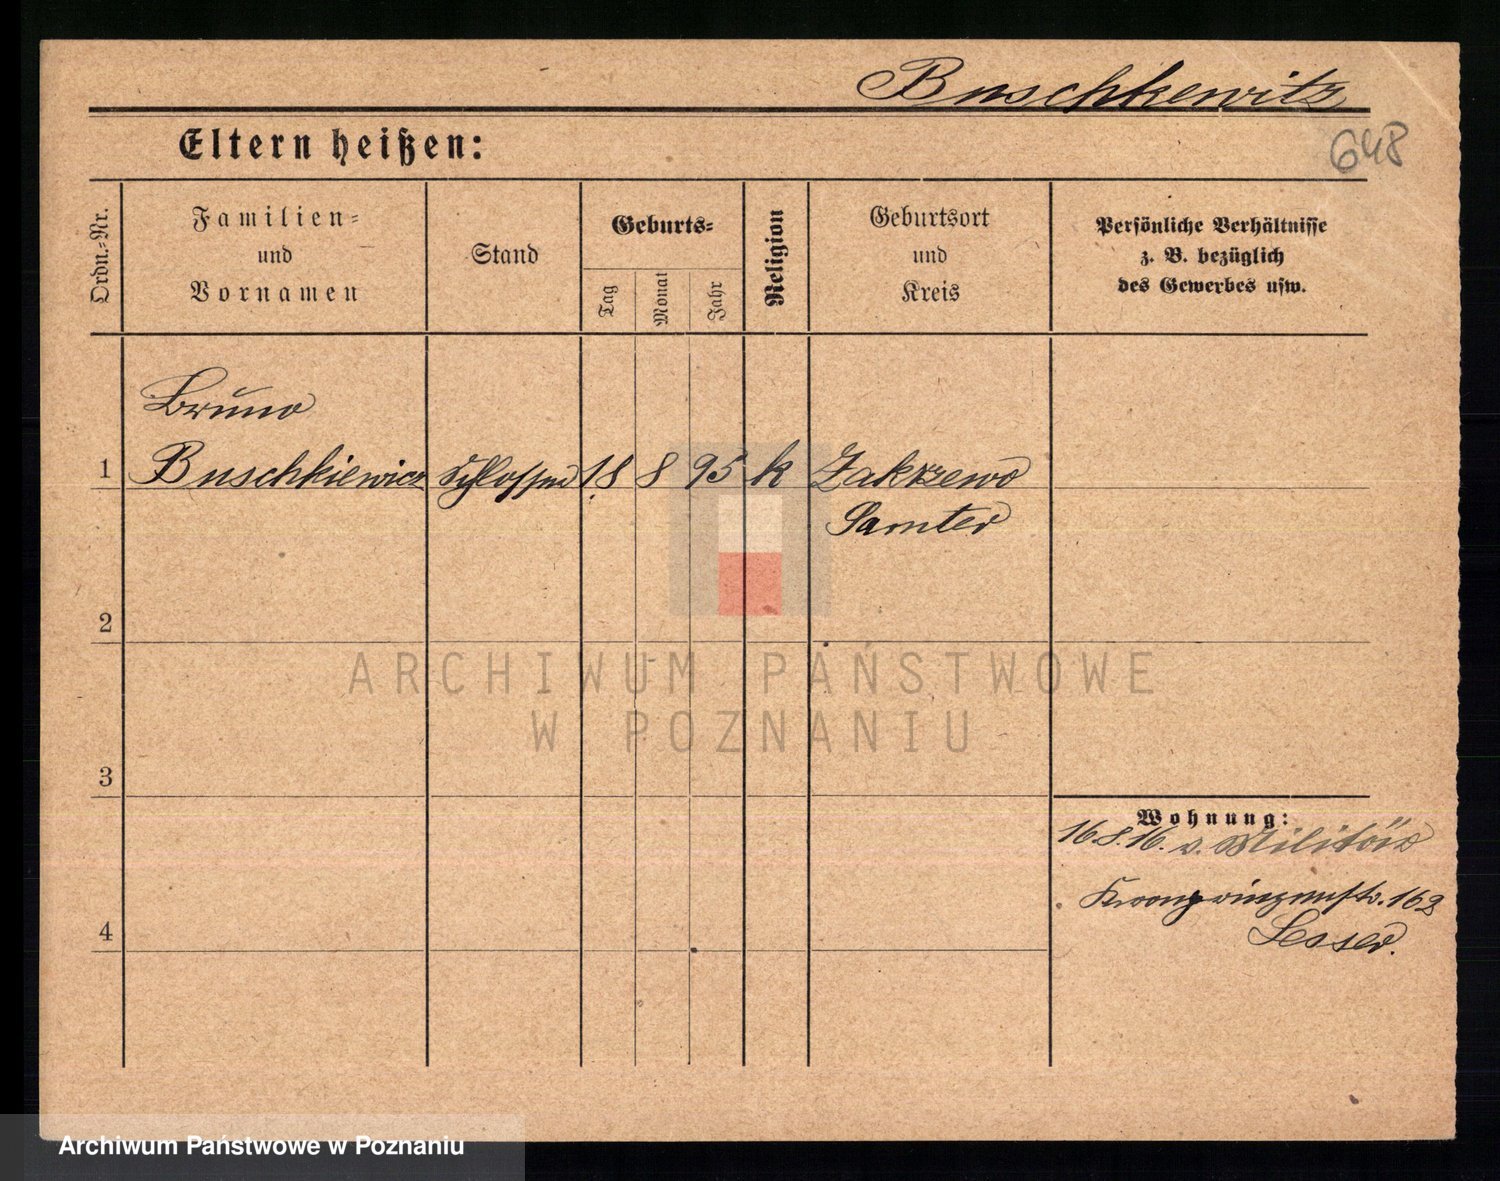 Buschkewitz
648
Eltern heißen:
Ordn.-Nr.
Familien-
und
Vornamen
Stand
Geburts-
Tag
Monat
Jahr
Religion
Geburtsort
und
Kreis
Persönliche Verhältnisse
z. B. bezüglich
des Gewerbes usw.
Bruno
1 Buschkiewicz Schlosser 18 8 95 k Zakrzewo
Samter
2
ARCHIWUM PAŃSTWOWE
W POZNANIU
3
Wohnung:
16.8.16. v. Militär
Kronprinzenstr. 162
Lesser.
4
Archiwum Państwowe w Poznaniu